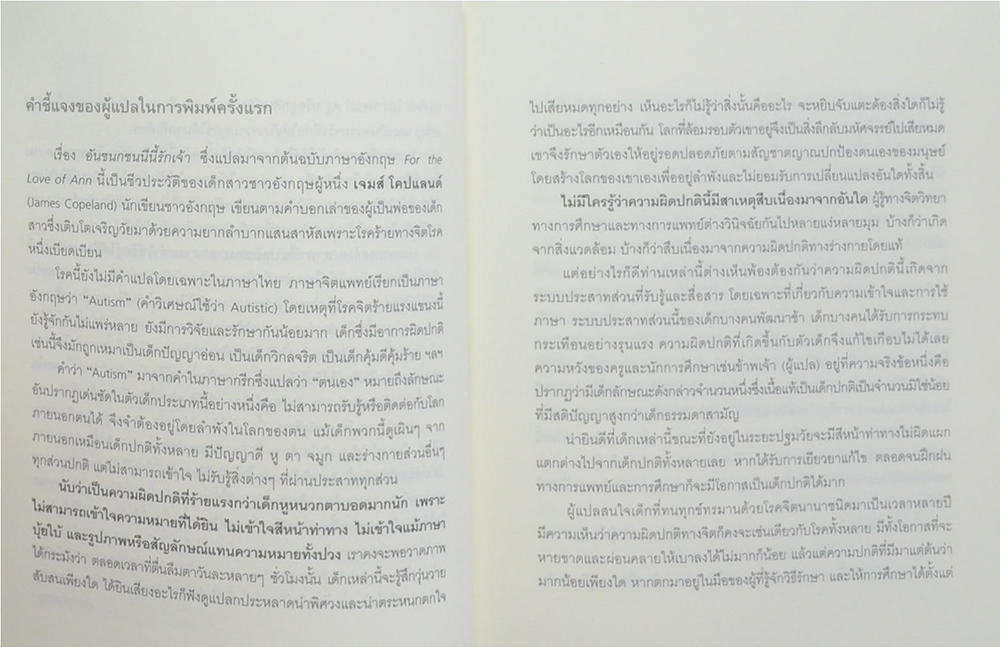 คำชี้แจงของผู้แปลในการพิมพ์ครั้งแรก
เรื่อง อันชนกชนนีนี้รักเจ้า ซึ่งแปลมาจากต้นฉบับภาษาอังกฤษ For the
Love of Ann นี้เป็นชีวประวัติของเด็กสาวชาวอังกฤษผู้หนึ่ง เจมส์ โคปแลนด์
(James Copeland) นักเขียนชาวอังกฤษ เขียนตามคำบอกเล่าของผู้เป็นพ่อของเด็ก
สาวซึ่งเติบโตเจริญวัยมาด้วยความยากลำบากแสนสาหัสเพราะโรคร้ายทางจิตโรค
หนึ่งเบียดเบียน
โรคนี้ยังไม่มีคำแปลโดยเฉพาะในภาษาไทย ภาษาจิตแพทย์เรียกเป็นภาษา
อังกฤษว่า “Autism” (คำวิเศษณ์ใช้ว่า Autistic) โดยเหตุที่โรคจิตร้ายแรงแขนงนี้
ยังรู้จักกันไม่แพร่หลาย ยังมีการวิจัยและรักษากันน้อยมาก เด็กซึ่งมีอาการผิดปกติ
เช่นนี้จึงมักถูกเหมาเป็นเด็กปัญญาอ่อน เป็นเด็กวิกลจริต เป็นเด็กคุ้มดีคุ้มร้าย ฯลฯ
คำว่า “Autism” มาจากคำในภาษากรีกซึ่งแปลว่า “ตนเอง” หมายถึงลักษณะ
อันปรากฏเด่นชัดในตัวเด็กประเภทนี้อย่างหนึ่งคือ ไม่สามารถรับรู้หรือติดต่อกับโลก
ภายนอกตนได้ จึงจำต้องอยู่โดยลำพังในโลกของตน แม้เด็กพวกนี้ดูเผินๆ จาก
ภายนอกเหมือนเด็กปกติทั้งหลาย มีปัญญาดี หู ตา จมูก และร่างกายส่วนอื่นๆ
ทุกส่วนปกติ แต่ไม่สามารถเข้าใจ ไม่รับรู้สิ่งต่างๆ ที่ผ่านประสาททุกส่วน
นับว่าเป็นความผิดปกติที่ร้ายแรงกว่าเด็กหูหนวกตาบอดมากนัก เพราะ
ไม่สามารถเข้าใจความหมายที่ได้ยิน ไม่เข้าใจสีหน้าท่าทาง ไม่เข้าใจแม้ภาษา
บุ้ยใบ้ และรูปภาพหรือสัญลักษณ์แทนความหมายทั้งปวง เราคงจะพอวาดภาพ
ได้กระมังว่า ตลอดเวลาที่ตื่นลืมตาวันละหลายๆ ชั่วโมงนั้น เด็กเหล่านี้จะรู้สึกวุ่นวาย
สับสนเพียงใด ได้ยินเสียงอะไรก็ฟังดูแปลกประหลาดน่าพิศวงและน่าตระหนกตกใจ
ไปเสียหมดทุกอย่าง เห็นอะไรก็ไม่รู้ว่าสิ่งนั้นคืออะไร จะหยิบจับแตะต้องสิ่งใดก็ไม่รู้
ว่าเป็นอะไรอีกเหมือนกัน โลกที่ล้อมรอบตัวเขาอยู่จึงเป็นสิ่งลึกลับมหัศจรรย์ไปเสียหมด
เขาจึงรักษาตัวเองให้อยู่รอดปลอดภัยตามสัญชาตญาณปกป้องตนเองของมนุษย์
โดยสร้างโลกของเขาเองเพื่ออยู่ลำพังและไม่ยอมรับการเปลี่ยนแปลงอันใดทั้งสิ้น
ไม่มีใครรู้ว่าความผิดปกตินี้มีสาเหตุสืบเนื่องมาจากอันใด ผู้รู้ทางจิตวิทยา
ทางการศึกษาและทางการแพทย์ต่างวินิจฉัยกันไปหลายแง่หลายมุม บ้างก็ว่าเกิด
จากสิ่งแวดล้อม บ้างก็ว่าสืบเนื่องมาจากความผิดปกติทางร่างกายโดยแท้
แต่อย่างไรก็ดีท่านเหล่านี้ต่างเห็นพ้องต้องกันว่าความผิดปกตินี้เกิดจาก
ระบบประสาทส่วนที่รับรู้และสื่อสาร โดยเฉพาะที่เกี่ยวกับความเข้าใจและการใช้
ภาษา ระบบประสาทส่วนนี้ของเด็กบางคนพัฒนาช้า เด็กบางคนได้รับการกระทบ
กระเทือนอย่างรุนแรง ความผิดปกติที่เกิดขึ้นกับตัวเด็กจึงแก้ไขเกือบไม่ได้เลย
ความหวังของครูและนักการศึกษาเช่นข้าพเจ้า (ผู้แปล) อยู่ที่ความจริงข้อหนึ่งคือ
ปรากฏว่ามีเด็กลักษณะดังกล่าวจำนวนหนึ่งซึ่งเนื้อแท้เป็นเด็กปกติเป็นจำนวนมิใช่น้อย
ที่มีสติปัญญาสูงกว่าเด็กธรรมดาสามัญ
น่ายินดีที่เด็กเหล่านี้ขณะที่ยังอยู่ในระยะปฐมวัยจะมีสีหน้าท่าทางไม่ผิดแผก
แตกต่างไปจากเด็กปกติทั้งหลายเลย หากได้รับการเยียวยาแก้ไข ตลอดจนฝึกฝน
ทางการแพทย์และการศึกษาก็จะมีโอกาสเป็นเด็กปกติได้มาก
ผู้แปลสนใจเด็กที่ทนทุกข์ทรมานด้วยโรคจิตนานาชนิดมาเป็นเวลาหลายปี
มีความเห็นว่าความผิดปกติทางจิตก็คงจะเช่นเดียวกับโรคทั้งหลาย มีทั้งโอกาสที่จะ
หายขาดและผ่อนคลายให้เบาลงได้ไม่มากก็น้อย แล้วแต่ความปกติที่มีมาแต่ต้นว่า
มากน้อยเพียงใด หากตกมาอยู่ในมือของผู้ที่รู้จักวิธีรักษา และให้การศึกษาได้ตั้งแต่